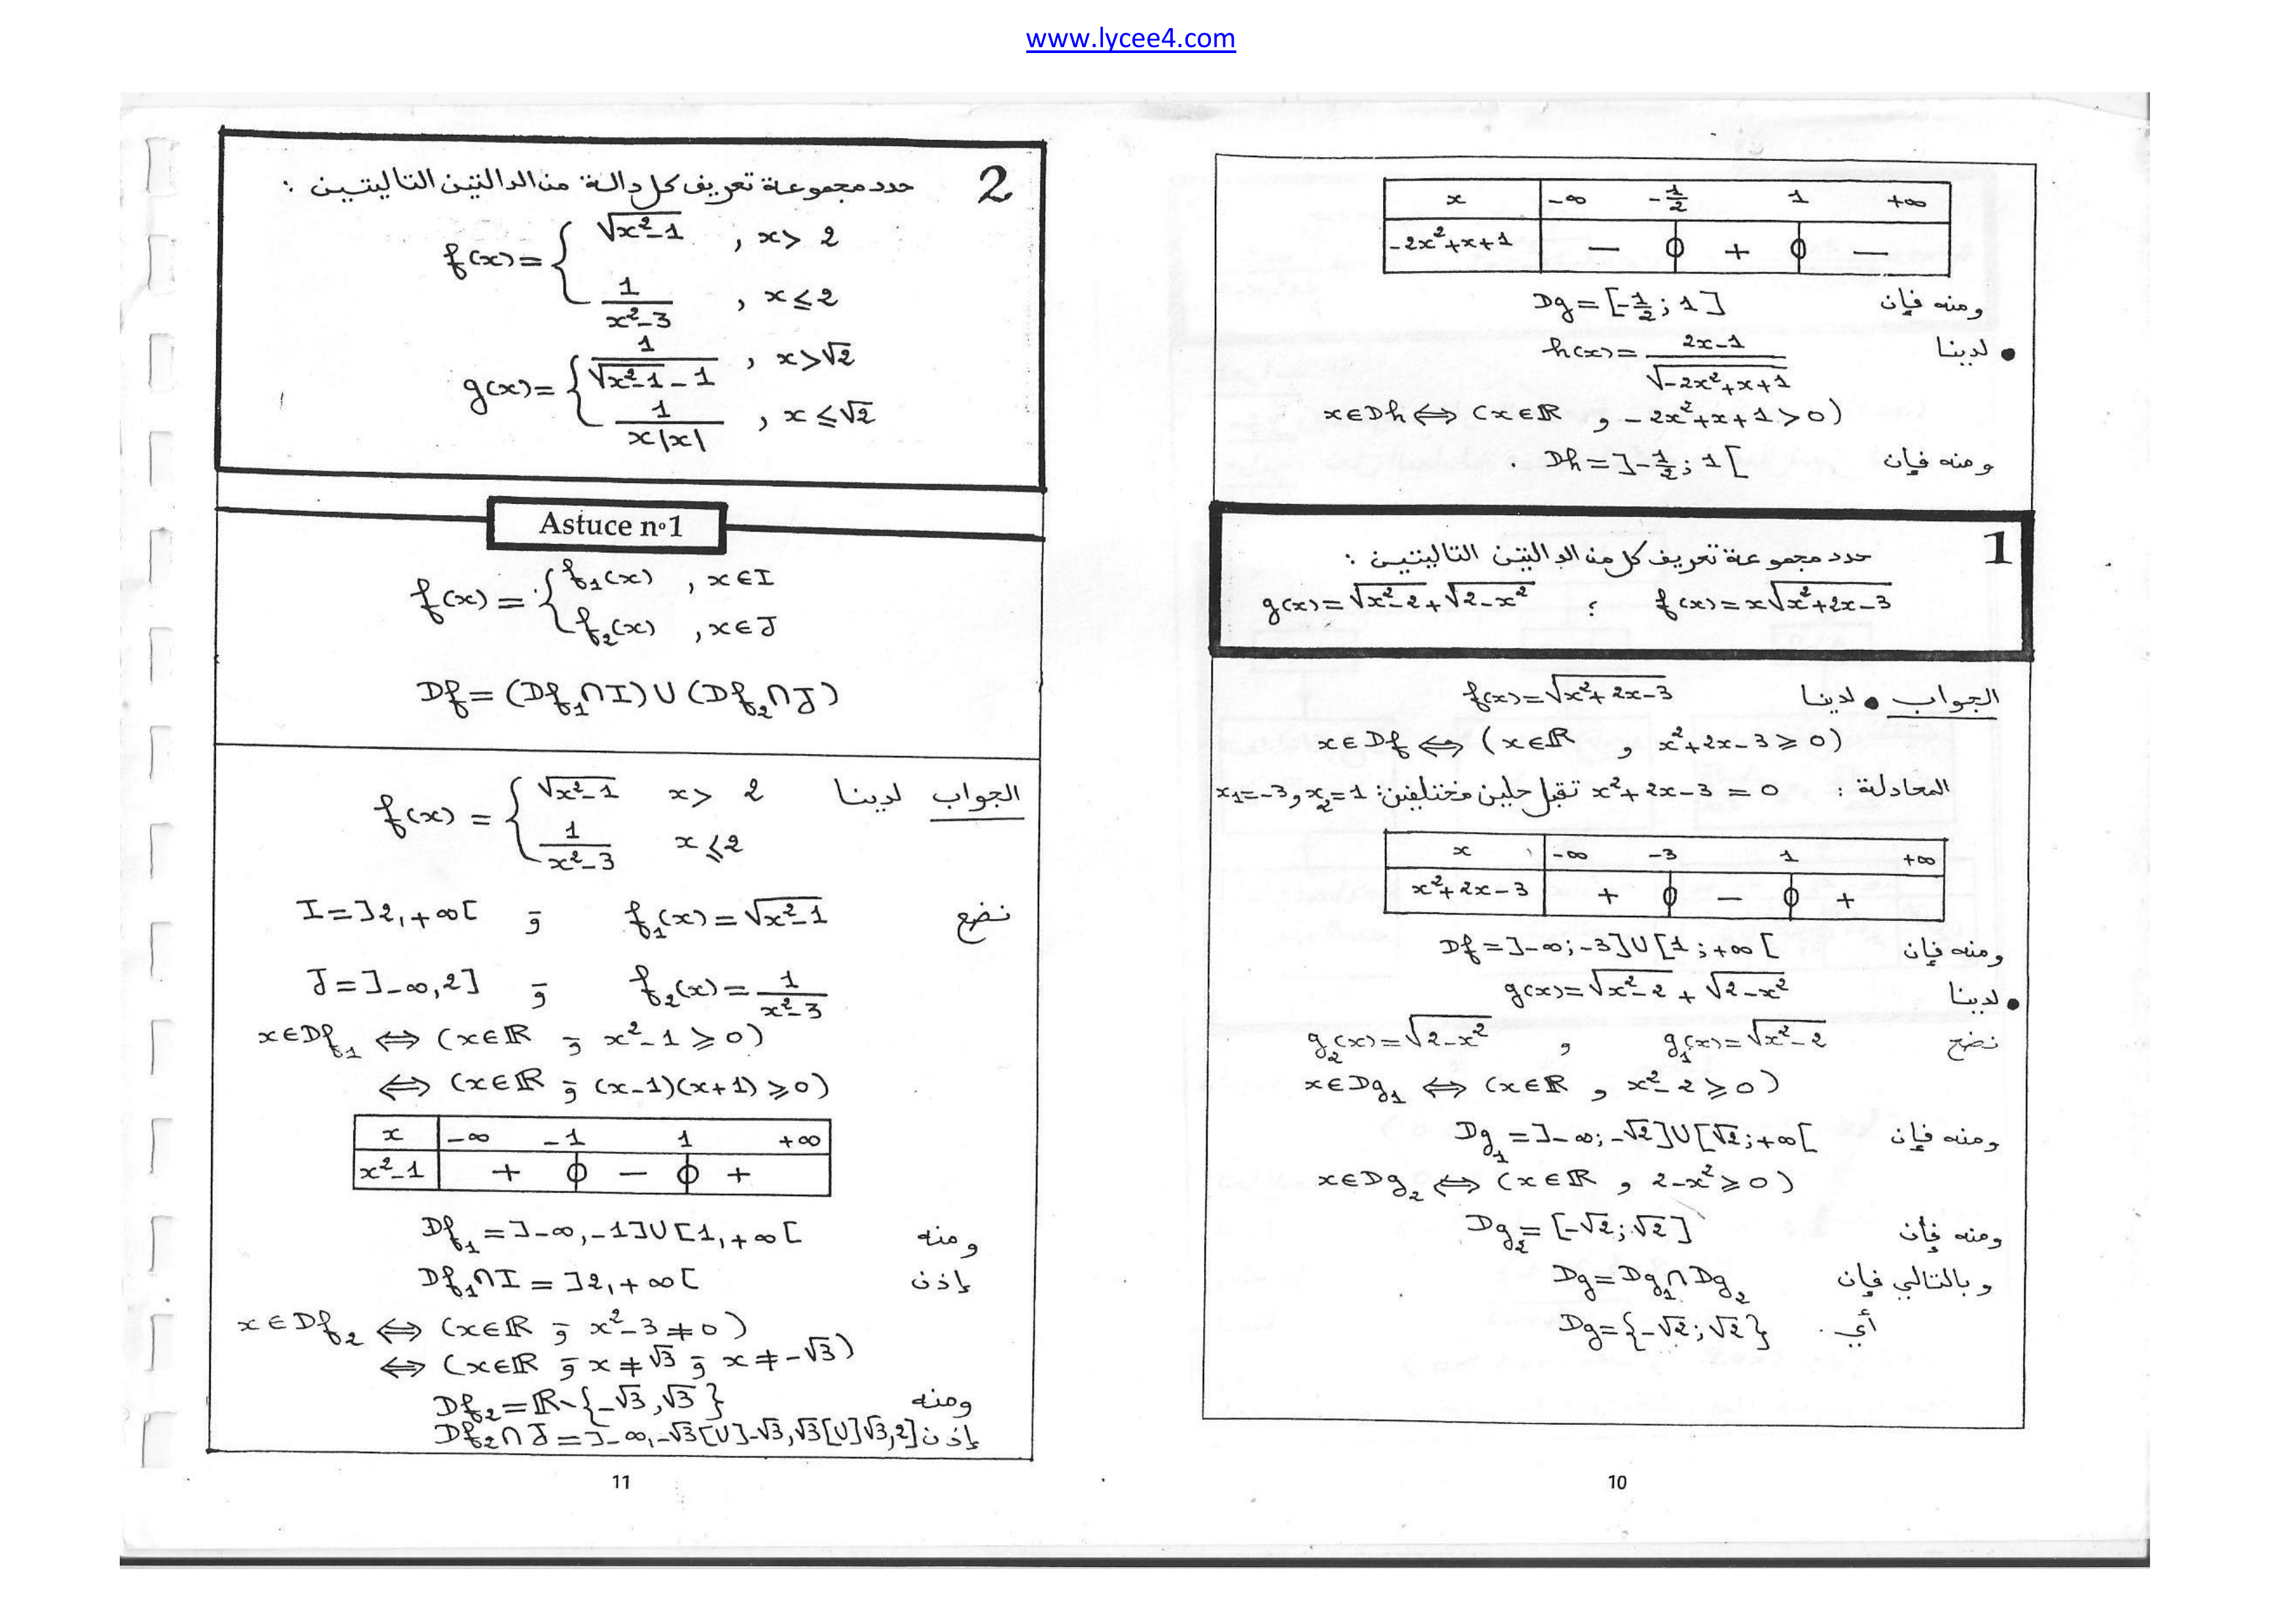 www.lycee4.com
x -∞ -1/2 1 +∞
-2x²+x+1 - 0 + 0 -
ومنه فإن Dg = [-1/2 ; 1]
• لدينا h(x) = (2x-1)/√(-2x²+x+1)
x∈Dh ⟺ (x∈ℝ و -2x²+x+1 > 0)
ومنه فإن Dh = ]-1/2 ; 1[ .
1
حدد مجموعة تعريف كل من الدالتين التاليتين :
f(x) = x√(x²+2x-3) ; g(x) = √(x²-2) + √(2-x²)
الجواب • لدينا f(x) = √(x²+2x-3)
x∈Df ⟺ (x∈ℝ و x²+2x-3 ⩾ 0)
المعادلة : x²+2x-3 = 0 تقبل حلين مختلفين : x₁=-3 و x₂=1
x -∞ -3 1 +∞
x²+2x-3 + 0 - 0 +
ومنه فإن Df = ]-∞ ; -3] ∪ [1 ; +∞[
• لدينا g(x) = √(x²-2) + √(2-x²)
نضع g₁(x) = √(x²-2) و g₂(x) = √(2-x²)
x∈Dg₁ ⟺ (x∈ℝ و x²-2 ⩾ 0)
ومنه فإن Dg₁ = ]-∞ ; -√2] ∪ [√2 ; +∞[
x∈Dg₂ ⟺ (x∈ℝ و 2-x² ⩾ 0)
ومنه فإن Dg₂ = [-√2 ; √2]
وبالتالي فإن Dg = Dg₁ ∩ Dg₂
أي . Dg = {-√2 ; √2}
10
2
حدد مجموعة تعريف كل دالة من الدالتين التاليتين :
f(x) = { √(x²-1) , x > 2
1/(x²-3) , x ⩽ 2
g(x) = { 1/(√(x²-1) - 1) , x > √2
1/(x|x|) , x ⩽ √2
Astuce n°1
f(x) = { f₁(x) , x∈I
f₂(x) , x∈J
Df = (Df₁ ∩ I) ∪ (Df₂ ∩ J)
الجواب لدينا f(x) = { √(x²-1) x > 2
1/(x²-3) x ⩽ 2
نضع f₁(x) = √(x²-1) و I = ]2, +∞[
f₂(x) = 1/(x²-3) و J = ]-∞, 2]
x∈Df₁ ⟺ (x∈ℝ و x²-1 ⩾ 0)
⟺ (x∈ℝ و (x-1)(x+1) ⩾ 0)
x -∞ -1 1 +∞
x²-1 + 0 - 0 +
ومنه Df₁ = ]-∞, -1] ∪ [1, +∞[
إذن Df₁ ∩ I = ]2, +∞[
x∈Df₂ ⟺ (x∈ℝ و x²-3 ≠ 0)
⟺ (x∈ℝ و x ≠ √3 و x ≠ -√3)
ومنه Df₂ = ℝ \ {-√3, √3}
إذن Df₂ ∩ J = ]-∞, -√3[ ∪ ]-√3, √3[ ∪ ]√3, 2]
11